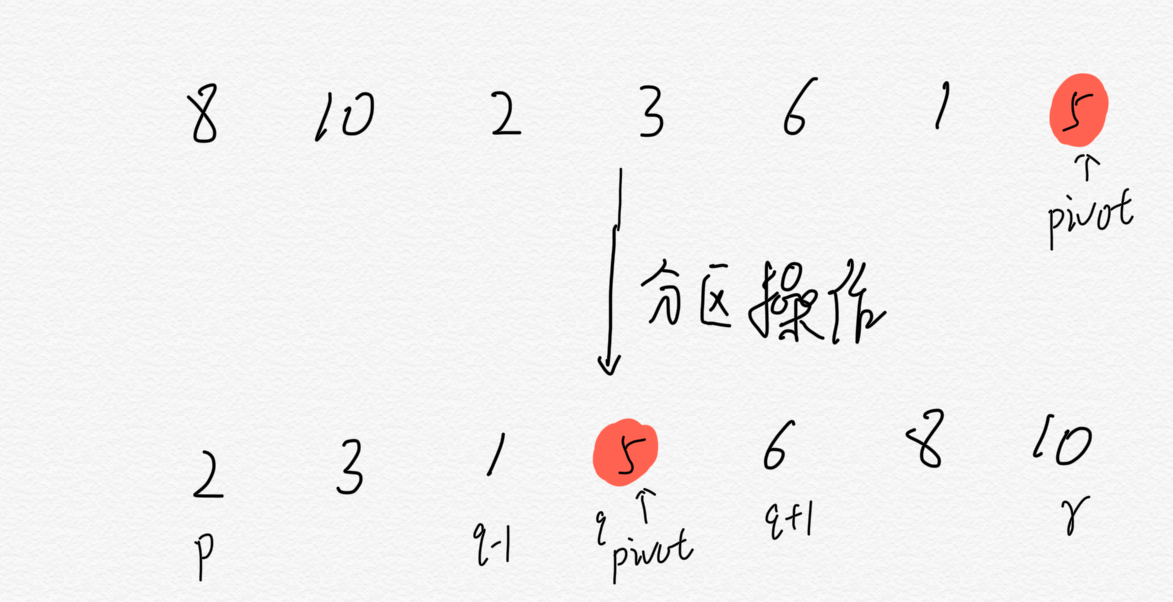 8 10 2 3 6 1 5
↑
pivot
分区操作
2 3 1 5 6 8 10
p q-1 q ↑ q+1 r
pivot